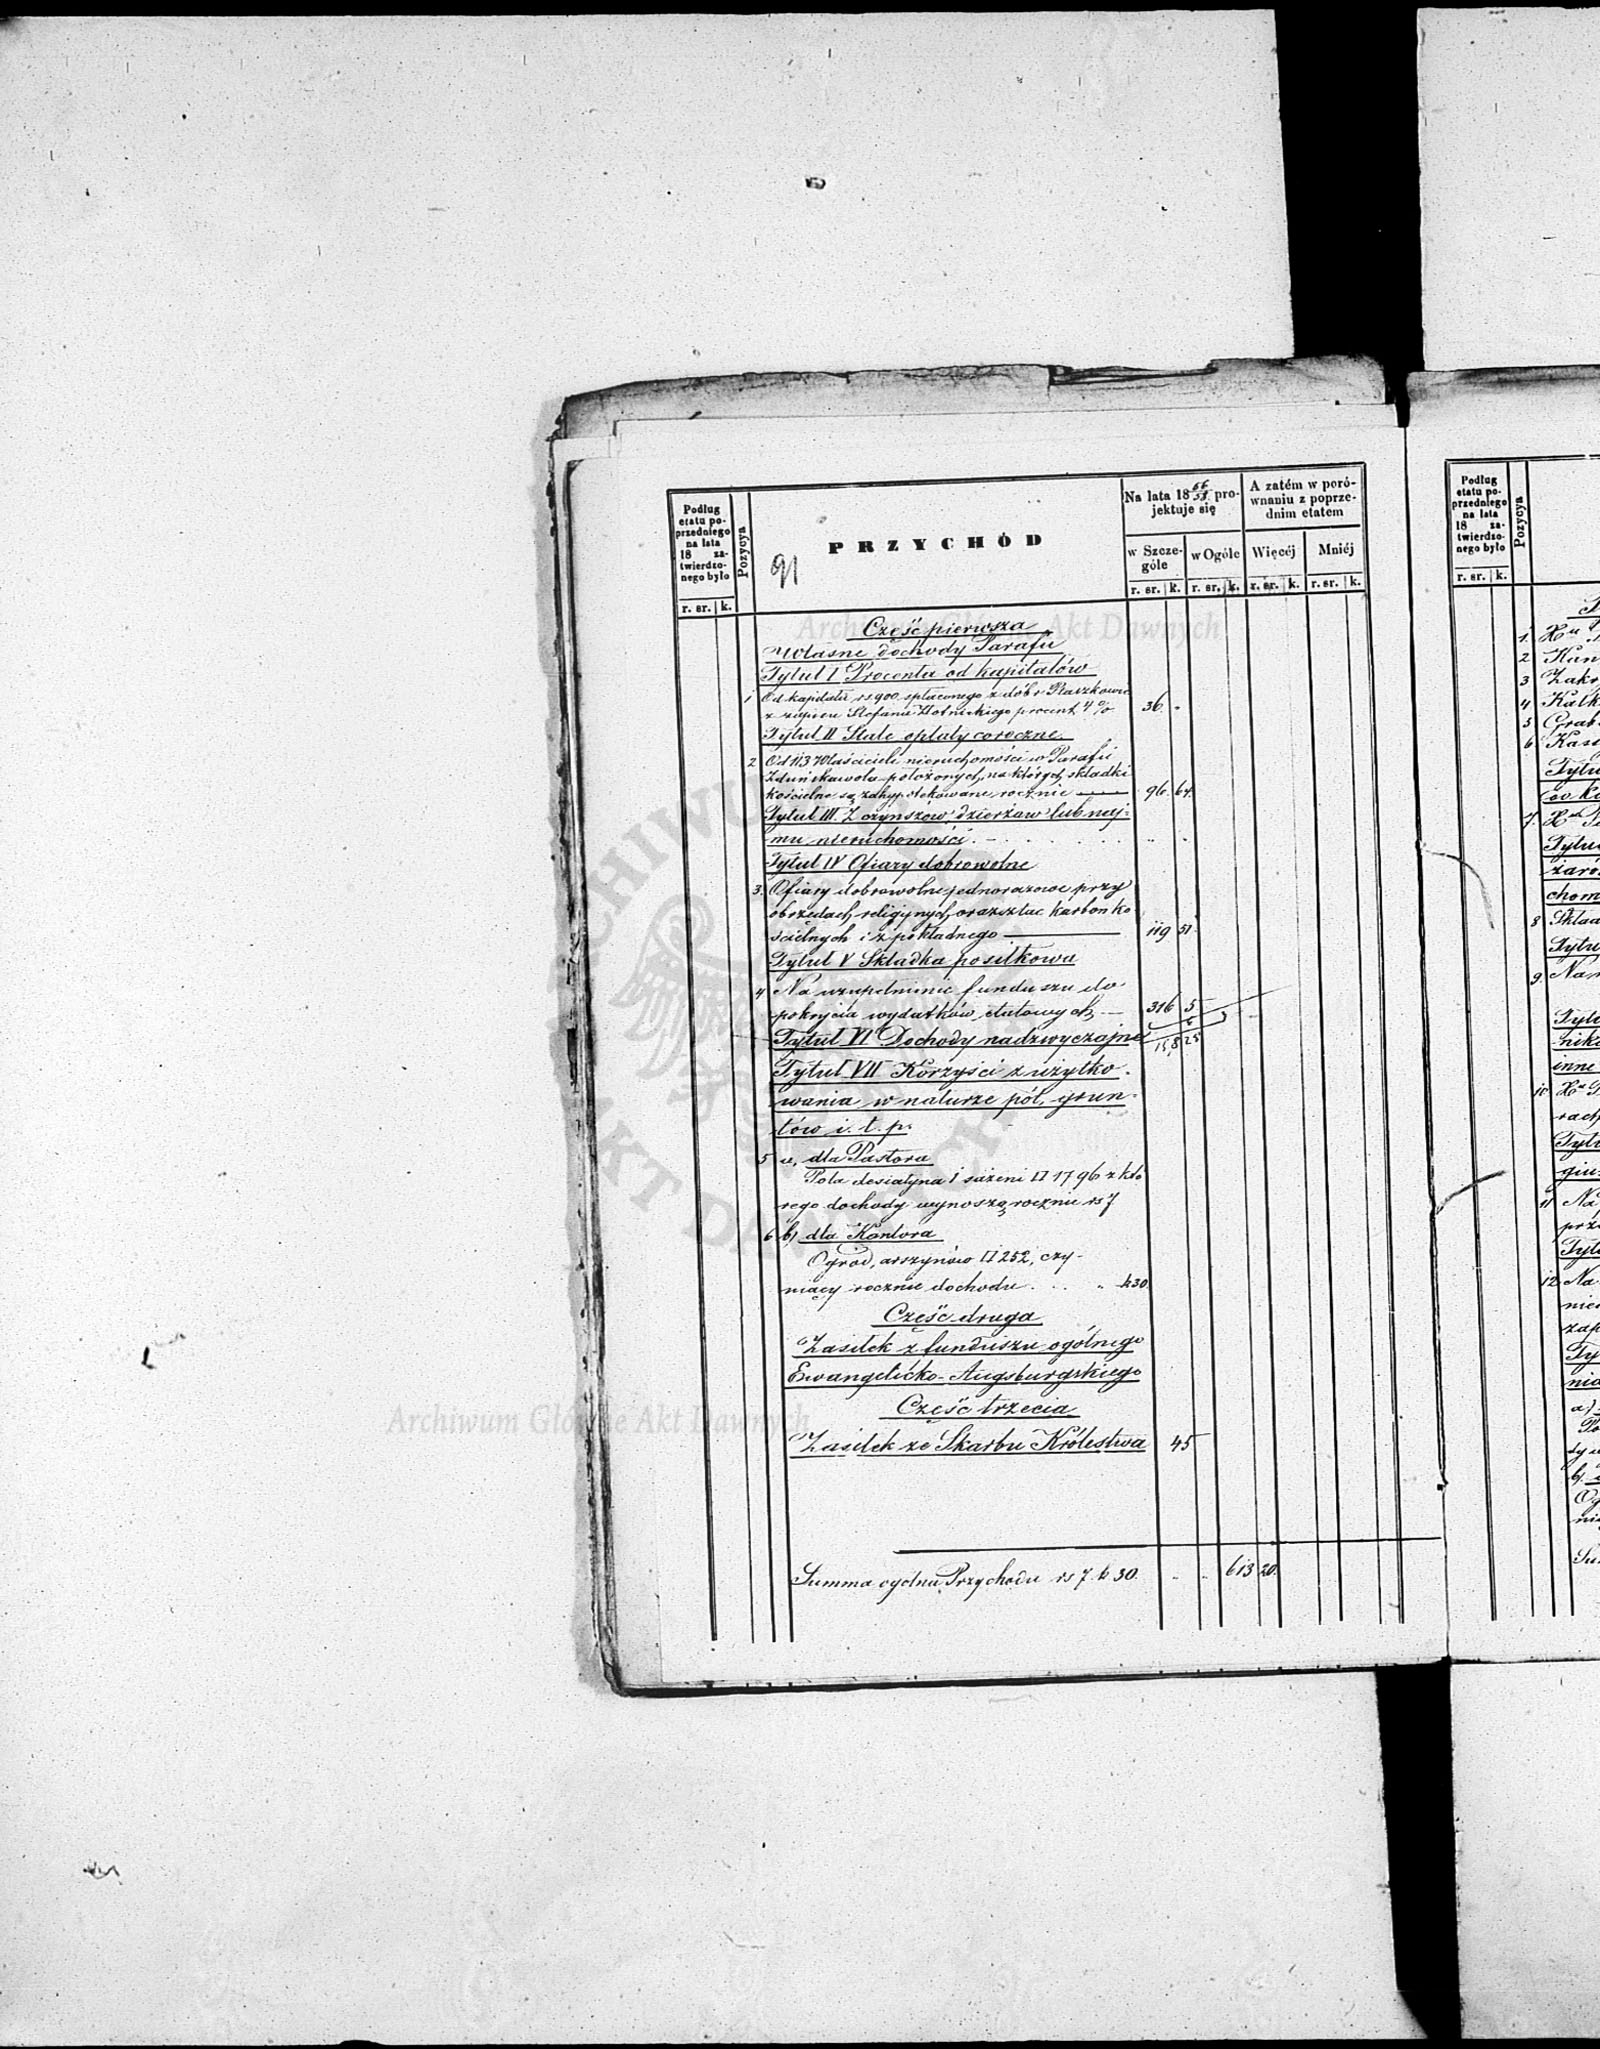 Podług etatu po-
przedniego
na lata
18 za-
twierdzo-
nego było
r. sr. k.
Pozycya
PRZYCHÓD
91
Na lata 18 66/68 pro-
jektuje się
w Szcze-
góle
w Ogóle
r. sr. k. r. sr. k.
A zatém w poró-
wnaniu z poprze-
dnim etatem
Więcéj Mniéj
r. sr. k. r. sr. k.
Część pierwsza
Własne dochody Parafii
Tytuł I Procenta od kapitałów
1 Od kapitału rs 900 spłaconego z dóbr
z zapisu Stefana Złotnickiego procent 4% 36 -
Tytuł II Stałe opłaty coroczne
2 Od 113 Właścicieli nieruchomości w Parafii
Zduńskawola położonych, na których składki
kościelne są zahypotekowane rocznie 96. 64.
Tytuł III. Z czynszów dzierżaw lub naj-
mu nieruchomości
Tytuł IV Ofiary dobrowolne
3. Ofiary dobrowolne jednorazowe przy
obrzędach religijnych oraz z tac karbon ko-
ścielnych i z pokładnego 119 51.
Tytuł V Składka posiłkowa
4 Na uzupełnienie funduszu do
pokrycia wydatków etatowych 316 5
Tytuł VI Dochody nadzwyczajne
Tytuł VII Korzyści z użytko-
wania w naturze pól, grun-
tów i. t. p.
5 a, dla Pastora
Pola desiatyna 1 sażeni □ 1796 z któ-
rego dochody wynoszą rocznie rs 7
6 b) dla Kantora
Ogród, arszynów □ 252, czy-
niący rocznie dochodu . . . " k 30
Część druga
Zasiłek z funduszu ogólnego
Ewangelicko-Augsburgskiego
Część trzecia
Zasiłek ze Skarbu Królestwa 45
Summa ogólna Przychodu rs 7 k 30. 613 20.
Podług
etatu po-
przedniego
na lata
18 za-
twierdzo-
nego było
r. sr. k.
Pozycya
1.
2
3
4
5
6
7.
8
9.
10
11
12
Archiwum Główne Akt Dawnych
Archiwum Główne Akt Dawnych